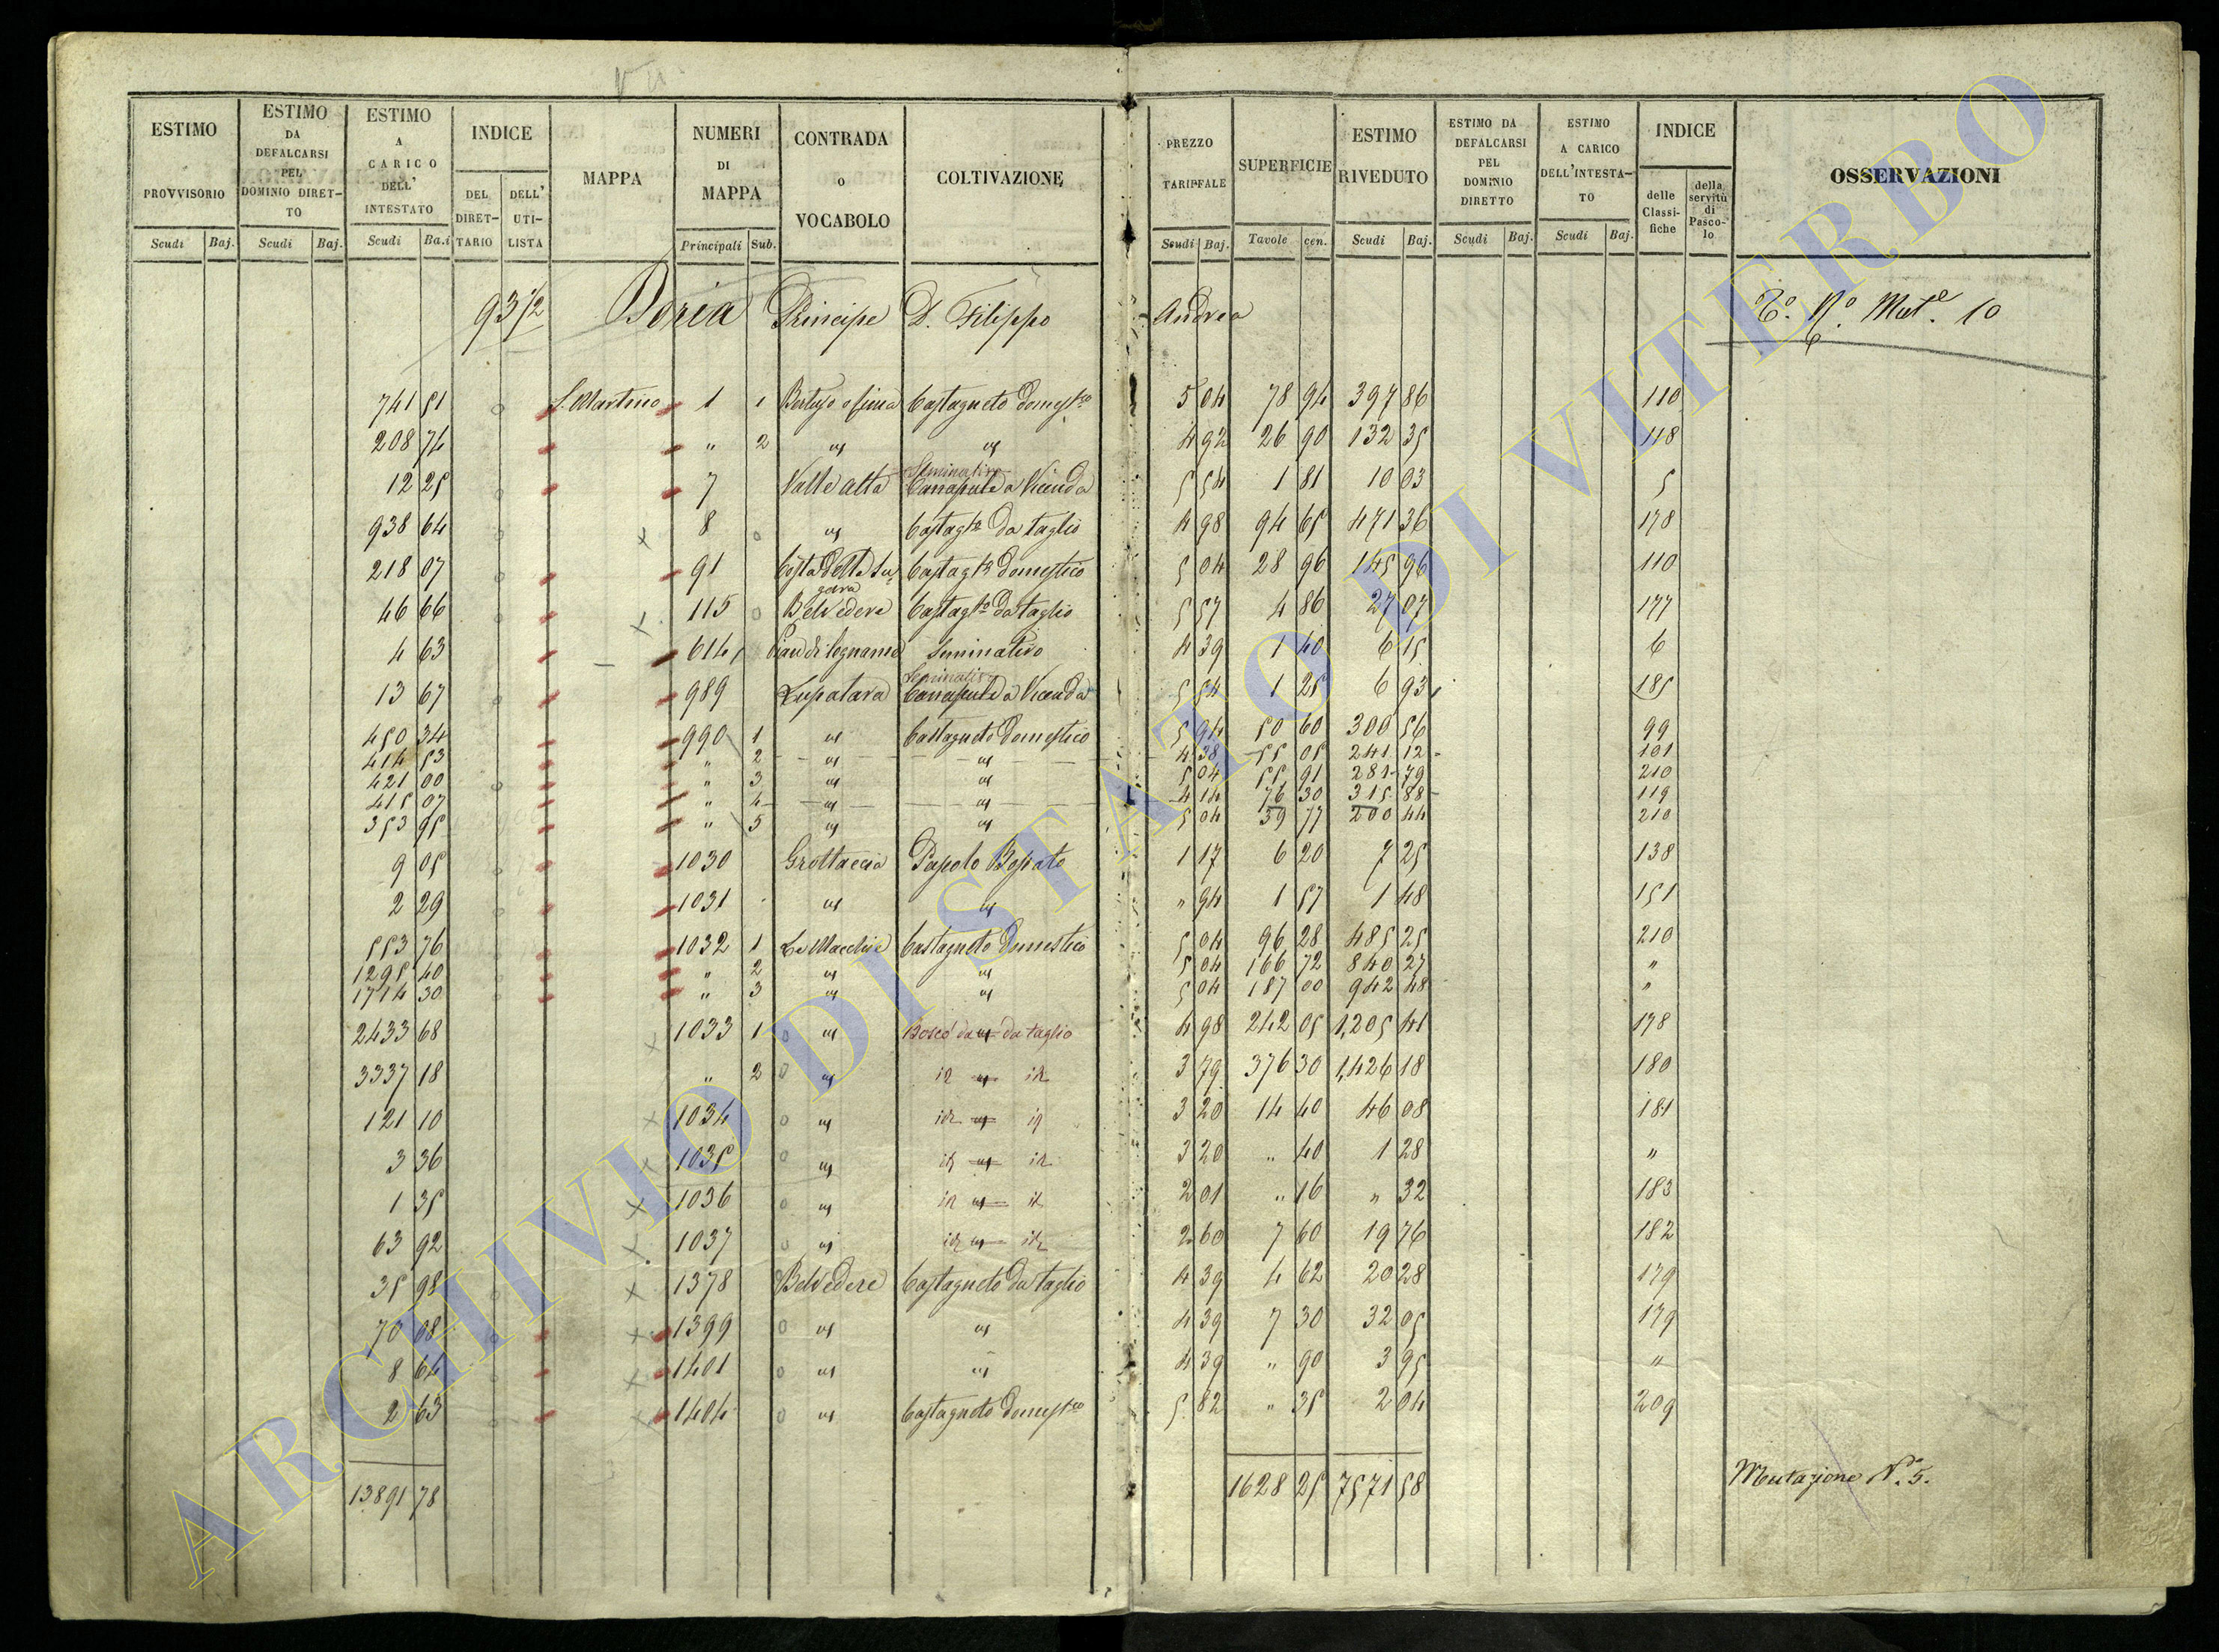 ESTIMO PROVVISORIO Scudi Baj.
ESTIMO DA DEFALCARSI PEL DOMINIO DIRETTO Scudi Baj.
ESTIMO A CARICO DELL' INTESTATO Scudi Ba.i
INDICE DEL DIRETTARIO DELL' UTILISTA
MAPPA
NUMERI DI MAPPA Principali Sub.
CONTRADA o VOCABOLO
COLTIVAZIONE
PREZZO TARIFFALE Scudi Baj.
SUPERFICIE Tavole cen.
ESTIMO RIVEDUTO Scudi Baj.
ESTIMO DA DEFALCARSI PEL DOMINIO DIRETTO Scudi Baj.
ESTIMO A CARICO DELL'INTESTATO Scudi Baj.
INDICE delle Classifiche della servitù di Pascolo
OSSERVAZIONI
93 1/2 Doria Principe D. Filippo Andrea Mut.e 10
741 51 S. Martino 1 1 Castagneto domest.co 5 04 78 94 397 86 110
208 74 " 2 4 92 26 90 132 35 118
12 25 7 Valle alta Seminativo Canapule a Vicenda 5 54 1 81 10 03 5
938 64 8 Castag.to da taglio 4 98 94 65 471 36 178
218 07 91 Costa della Castag.to domestico 5 04 28 96 145 96 110
46 66 115 Belvedere Castag.to da taglio 5 57 4 86 27 07 177
4 63 614 Pian di legname Seminativo 4 39 1 40 6 15 6
13 67 989 Lupatara Seminativo Canapule a Vicenda 5 54 1 25 6 93 185
450 34 990 1 Castagneto Domestico 5 94 50 60 300 56 99
414 53 " 2 4 38 55 05 241 12 101
421 00 " 3 5 04 55 91 281 79 210
415 07 " 4 4 14 76 30 315 88 119
353 95 " 5 5 04 39 77 200 44 210
9 05 1030 Grottaccia Pascolo 1 17 6 20 7 25 138
2 29 1031 " 94 1 57 1 48 151
553 76 1032 1 Le Macchie Castagneto Domestico 5 04 96 28 485 25 210
1298 40 " 2 5 04 166 72 840 27 "
1714 30 " 3 5 04 187 00 942 48 "
2433 68 1033 1 Bosco da taglio 4 98 242 05 1,205 41 178
3337 18 " 2 3 79 376 30 1,426 18 180
121 10 1034 3 20 14 40 46 08 181
3 36 1035 3 20 " 40 1 28 "
1 35 1036 2 01 " 16 " 32 183
63 92 1037 2 60 7 60 19 76 182
35 98 1378 Belvedere Castagneto da taglio 4 39 4 62 20 28 179
70 08 1399 4 39 7 30 32 05 179
8 64 1401 4 39 " 90 3 95 "
2 63 1404 Castagneto domest.co 5 82 " 35 2 04 209
13891 78 1628 25 7571 58 Mutazione N. 5.
ARCHIVIO DI STATO DI VITERBO